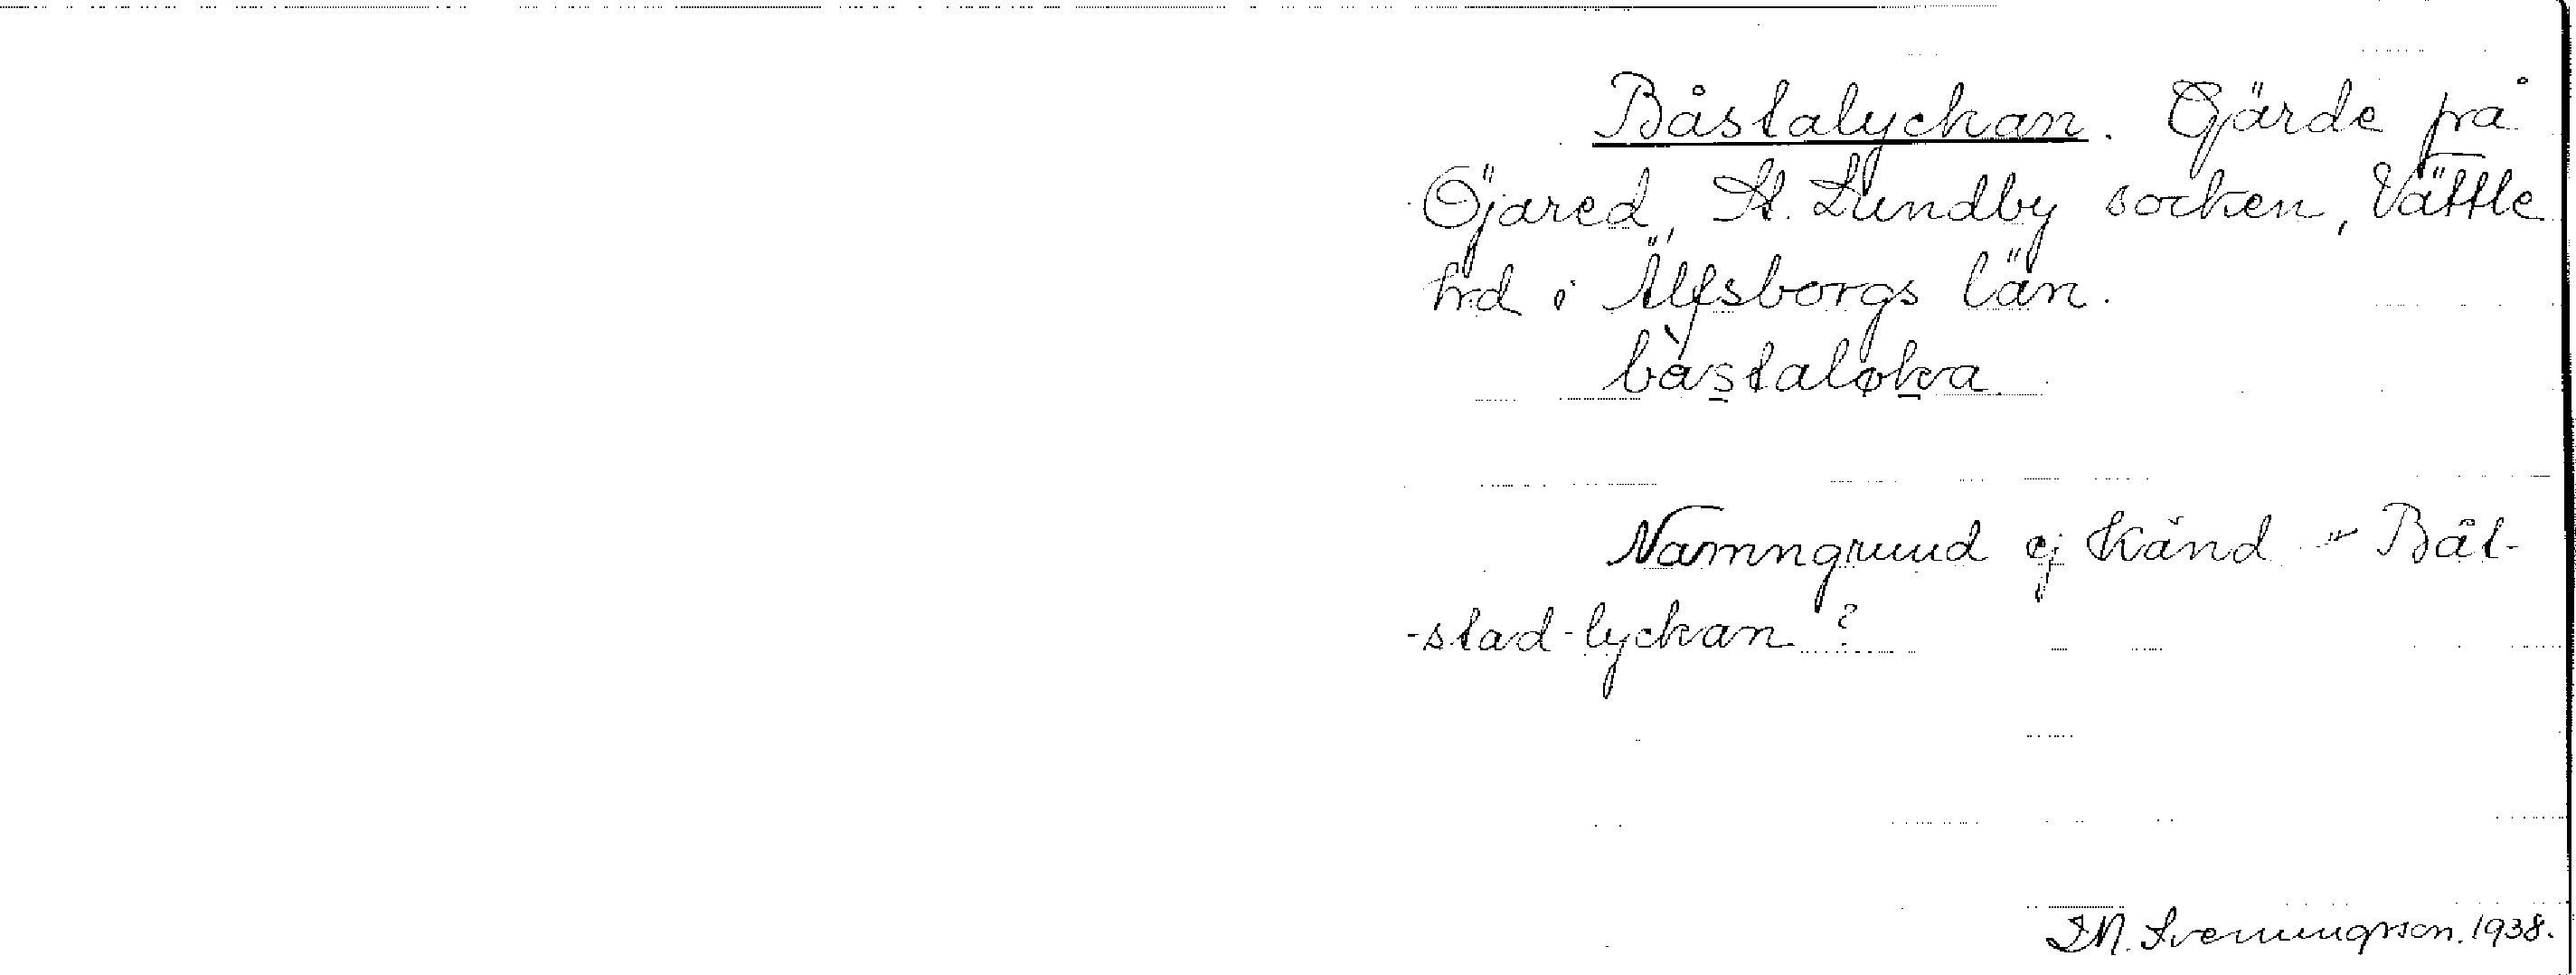 Båstalyckan. Gjärde på
Öjared, St. Lundby socken, Vättle
hrd i Älfsborgs län.
bàstaløka
Namngrund ej känd - Båt-
-stad-lyckan?
Svenningson. 1938.